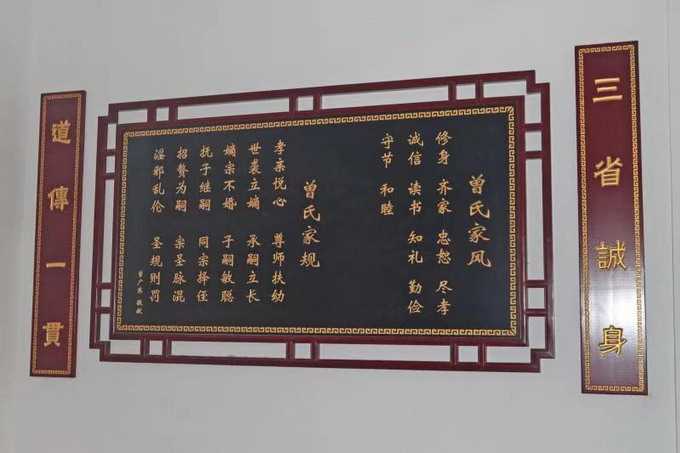 三省誠身
曾氏家风
修身 齐家 忠恕 尽孝
诚信 读书 知礼 勤俭
守节 和睦
曾氏家规
孝亲悦心 尊师扶幼
世袭立嫡 承嗣立长
嫡宗不婚 子嗣敏聪
抚子继嗣 同宗择侄
招赘为嗣 宗圣脉混
淫邪乱伦 圣规则罚
道傳一貫